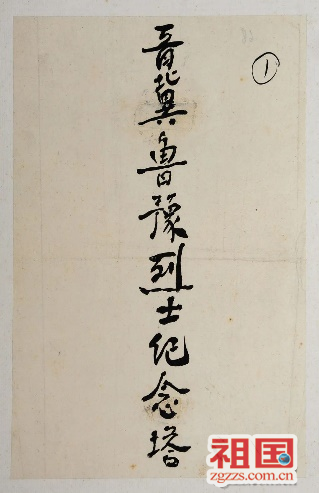 晋冀鲁豫烈士纪念塔
1
祖国
zgzzs.com.cn